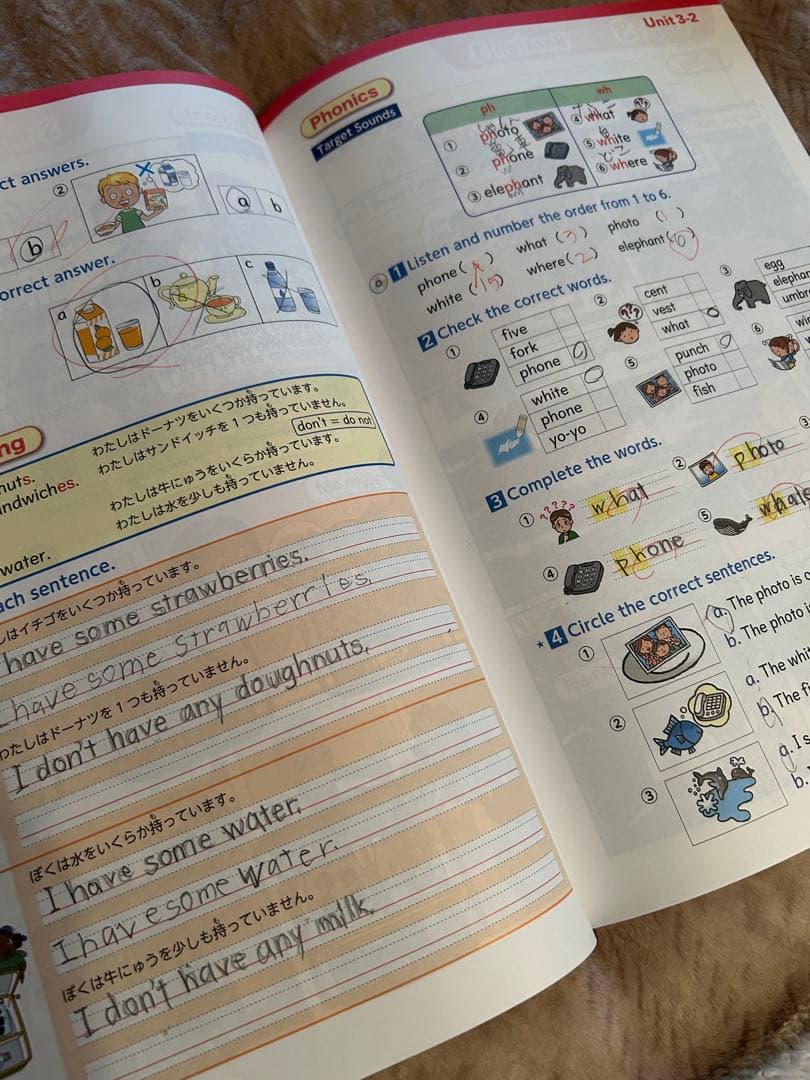 ct answers.
②
b
a b
orrect answer.
a b c
ng
nuts.
ndwiches.
water.
わたしはドーナツをいくつか持っています。
わたしはサンドイッチを1つも持っていません。
don't = do not
わたしは牛にゅうをいくらか持っています。
わたしは水を少しも持っていません。
ach sentence.
しはイチゴをいくつか持っています。
have some strawberries.
I have some strawberries.
わたしはドーナツを1つも持っていません。
I don't have any doughnuts.
ぼくは水をいくらか持っています。
I have some water.
I have some water.
ぼくは牛にゅうを少しも持っていません。
I don't have any milk.
Unit 3-2
Phonics
Target Sounds
ph wh
① photo ④ what
② phone ⑤ white
③ elephant ⑥ where
1 Listen and number the order from 1 to 6.
phone ( ) what (3) photo ( )
white ( ) where (2) elephant ( )
2 Check the correct words.
① five
fork
phone
② cent
vest
what
③ egg
elephan
umbre
④ white
phone
yo-yo
⑤ punch
photo
fish
⑥ win
3 Complete the words.
① what ② photo ③
④ phone ⑤ whale
★4 Circle the correct sentences.
① a. The photo is o
b. The photo i
② a. The whit
b. The fi
③ a. I s
b.